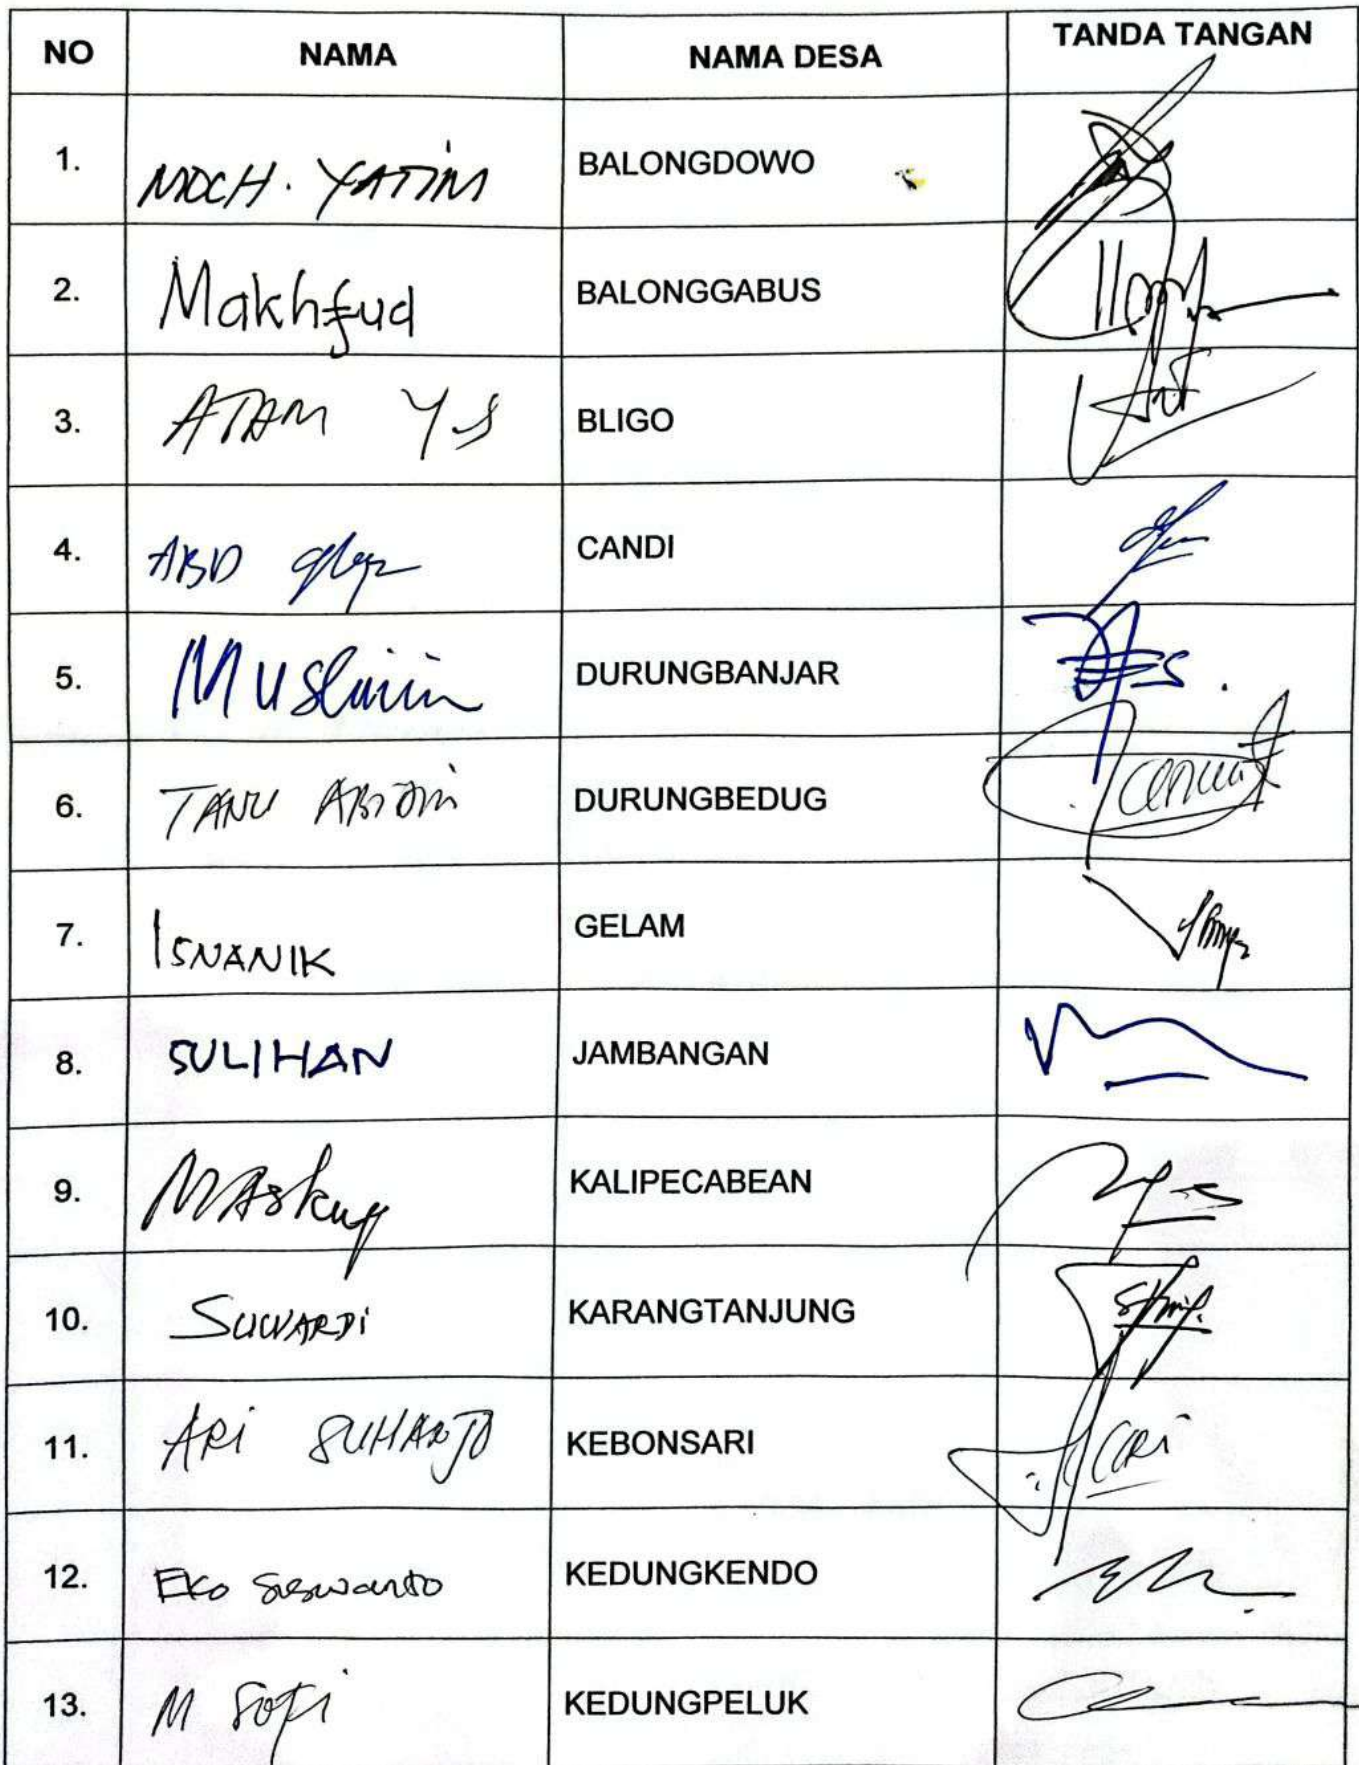 NO NAMA NAMA DESA TANDA TANGAN
1. MOCH. YATIM BALONGDOWO
2. Makhfud BALONGGABUS
3. ATAM YS BLIGO
4. ABD CANDI
5. Muslimin DURUNGBANJAR
6. TANU ABIDIN DURUNGBEDUG
7. ISNANIK GELAM
8. SULIHAN JAMBANGAN
9. MAskuf KALIPECABEAN
10. SUWARDI KARANGTANJUNG
11. ARI SUHARTO KEBONSARI
12. EKO Siswanto KEDUNGKENDO
13. M Sofi KEDUNGPELUK